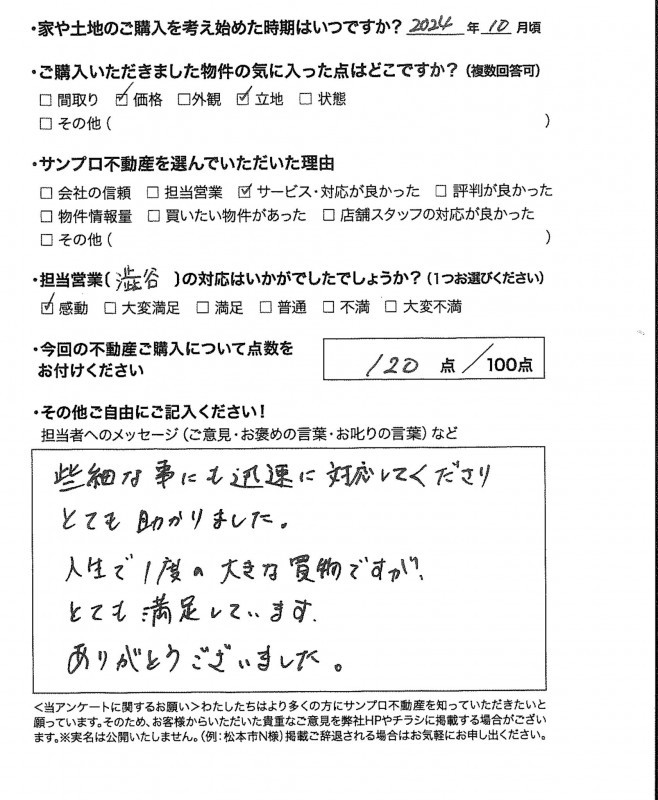 ・家や土地のご購入を考え始めた時期はいつですか? 2024 年 10 月頃
・ご購入いただきました物件の気に入った点はどこですか?（複数回答可）
□ 間取り ☑ 価格 □外観 ☑ 立地 □ 状態
□ その他（ ）
・サンプロ不動産を選んでいただいた理由
□ 会社の信頼 □ 担当営業 ☑ サービス・対応が良かった □ 評判が良かった
□ 物件情報量 □ 買いたい物件があった □ 店舗スタッフの対応が良かった
□ その他（ ）
・担当営業〔 澁谷 〕の対応はいかがでしたでしょうか?（1つお選びください）
☑ 感動 □ 大変満足 □ 満足 □ 普通 □ 不満 □ 大変不満
・今回の不動産ご購入について点数を
お付けください
120 点／100点
・その他ご自由にご記入ください!
担当者へのメッセージ（ご意見・お褒めの言葉・お叱りの言葉）など
些細な事にも迅速に対応してくださり
とても助かりました。
人生で1度の大きな買物ですが、
とても満足しています.
ありがとうございました。
＜当アンケートに関するお願い＞わたしたちはより多くの方にサンプロ不動産を知っていただきたいと
願っています。そのため、お客様からいただいた貴重なご意見を弊社HPやチラシに掲載する場合がござい
ます。※実名は公開いたしません。（例:松本市N様）掲載ご辞退される場合はお気軽にお申し出ください。